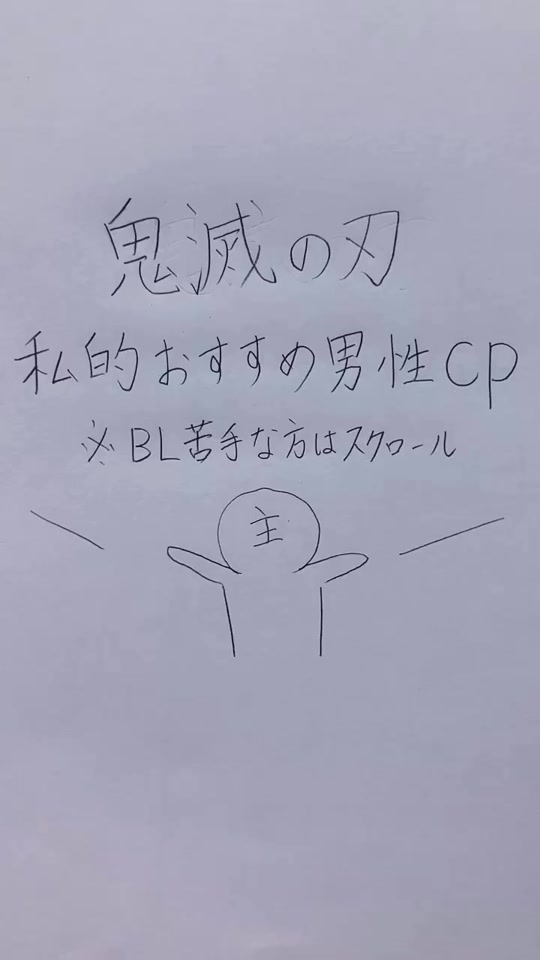 鬼滅の刃
私的おすすめ男性CP
※BL苦手な方はスクロール
主